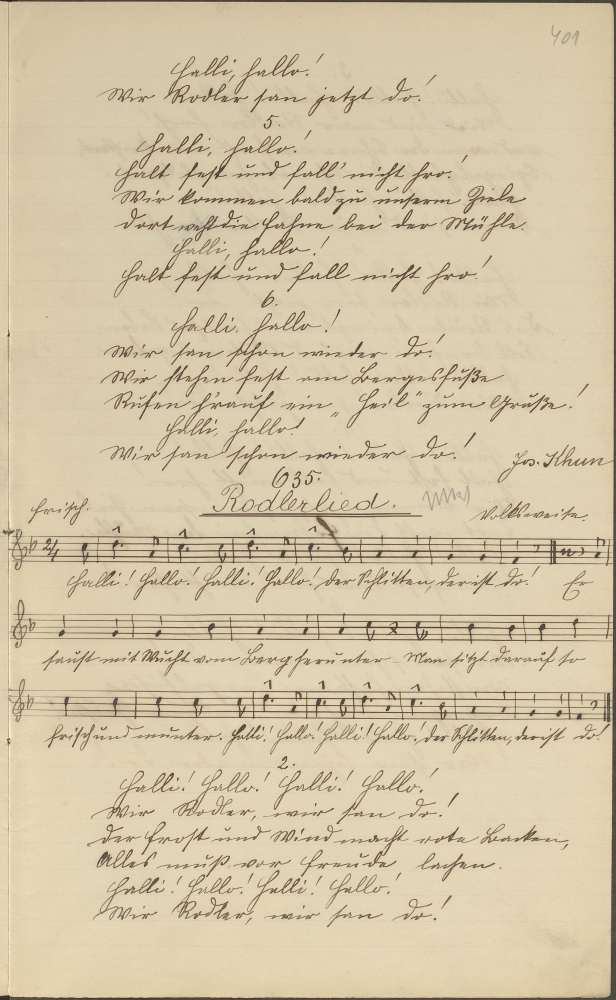 401
Halli, hallo!
Wir Rodler san jetzt do!
5.
Halli, hallo!
Halt fest und fall' nicht hro!
Wir kommen bald zu unserm Ziele
Dort weht die Fahne bei der Mühle.
Halli, hallo!
Halt fest und fall nicht hro!
6.
Halli, hallo!
Wir san schon wieder do!
Wir stehen fest am Bergesfuße
Rufen h'rauf ein „Heil" zum Gruße!
Halli, hallo!
Wir san schon wieder do!
Jos. Khun
635.
Rodlerlied.
Frisch.
Volksweise.
2/4
Halli! Hallo! Halli! Hallo! Der Schlitten, der ist do! Er
saust mit Wucht vom Berg herunter Man sitzt darauf so
frisch und munter. Halli! Hallo! Halli! Hallo! der Schlitten, der ist do!
2.
Halli! Hallo! Halli! Hallo!
Wir Rodler, wir san do!
Der Frost und Wind macht rote Backen,
Alles muß vor Freude lachen.
Halli! Hallo! Halli! Hallo!
Wir Rodler, wir san do!